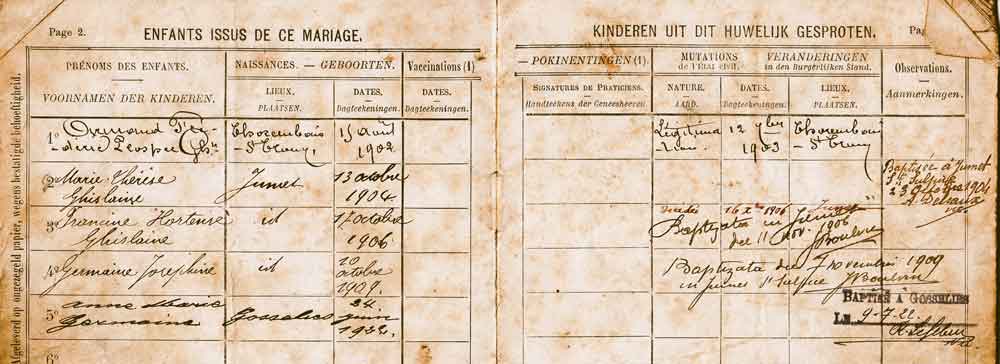 Page 2.
ENFANTS ISSUS DE CE MARIAGE.
KINDEREN UIT DIT HUWELIJK GESPROTEN.
Pa
PRÉNOMS DES ENFANTS.
VOORNAMEN DER KINDEREN.
NAISSANCES. — GEBOORTEN.
LIEUX.
PLAATSEN.
DATES.
Dagteekeningen.
Vaccinations (1)
DATES.
Dagteekeningen.
— POKINENTINGEN (1).
SIGNATURES DE PRATICIENS.
Handteekens der Geneesheeren
MUTATIONS
de l'Etat civil.
VERANDERINGEN
in den Burgerlijken Stand.
NATURE.
AARD.
DATES.
Dagteekeningen.
LIEUX.
PLAATSEN.
Observations.
Aanmerkingen.
Afgeleverd op ongezegeld papier, wegens bestatigde behoeftigheid.
1°
Thorembais
St Trony,
15 août
1902
Légitima
tion
12 9bre
1903
Thorembais
St Trony
2° Marie Thérèse
Ghislaine
Jumet
13 octobre
1904
Baptisée à Jumet
St Sulpice
1904
3° Francine Hortense
Ghislaine
id
17 octobre
1906
16 Xbre 1906
Jumet
Baptizata in Jumet
die 11 nov. 1906
Boulvin
4° Germaine Josephine
id
20
octobre
1909
Baptizata die 7 novembri 1909
in Jumet St Sulpice
Boulvin
5° Anne Marie
Germaine
Gosselies
24
juin
1922
BAPTISÉ A GOSSELIES
LE 9-7-22
6°